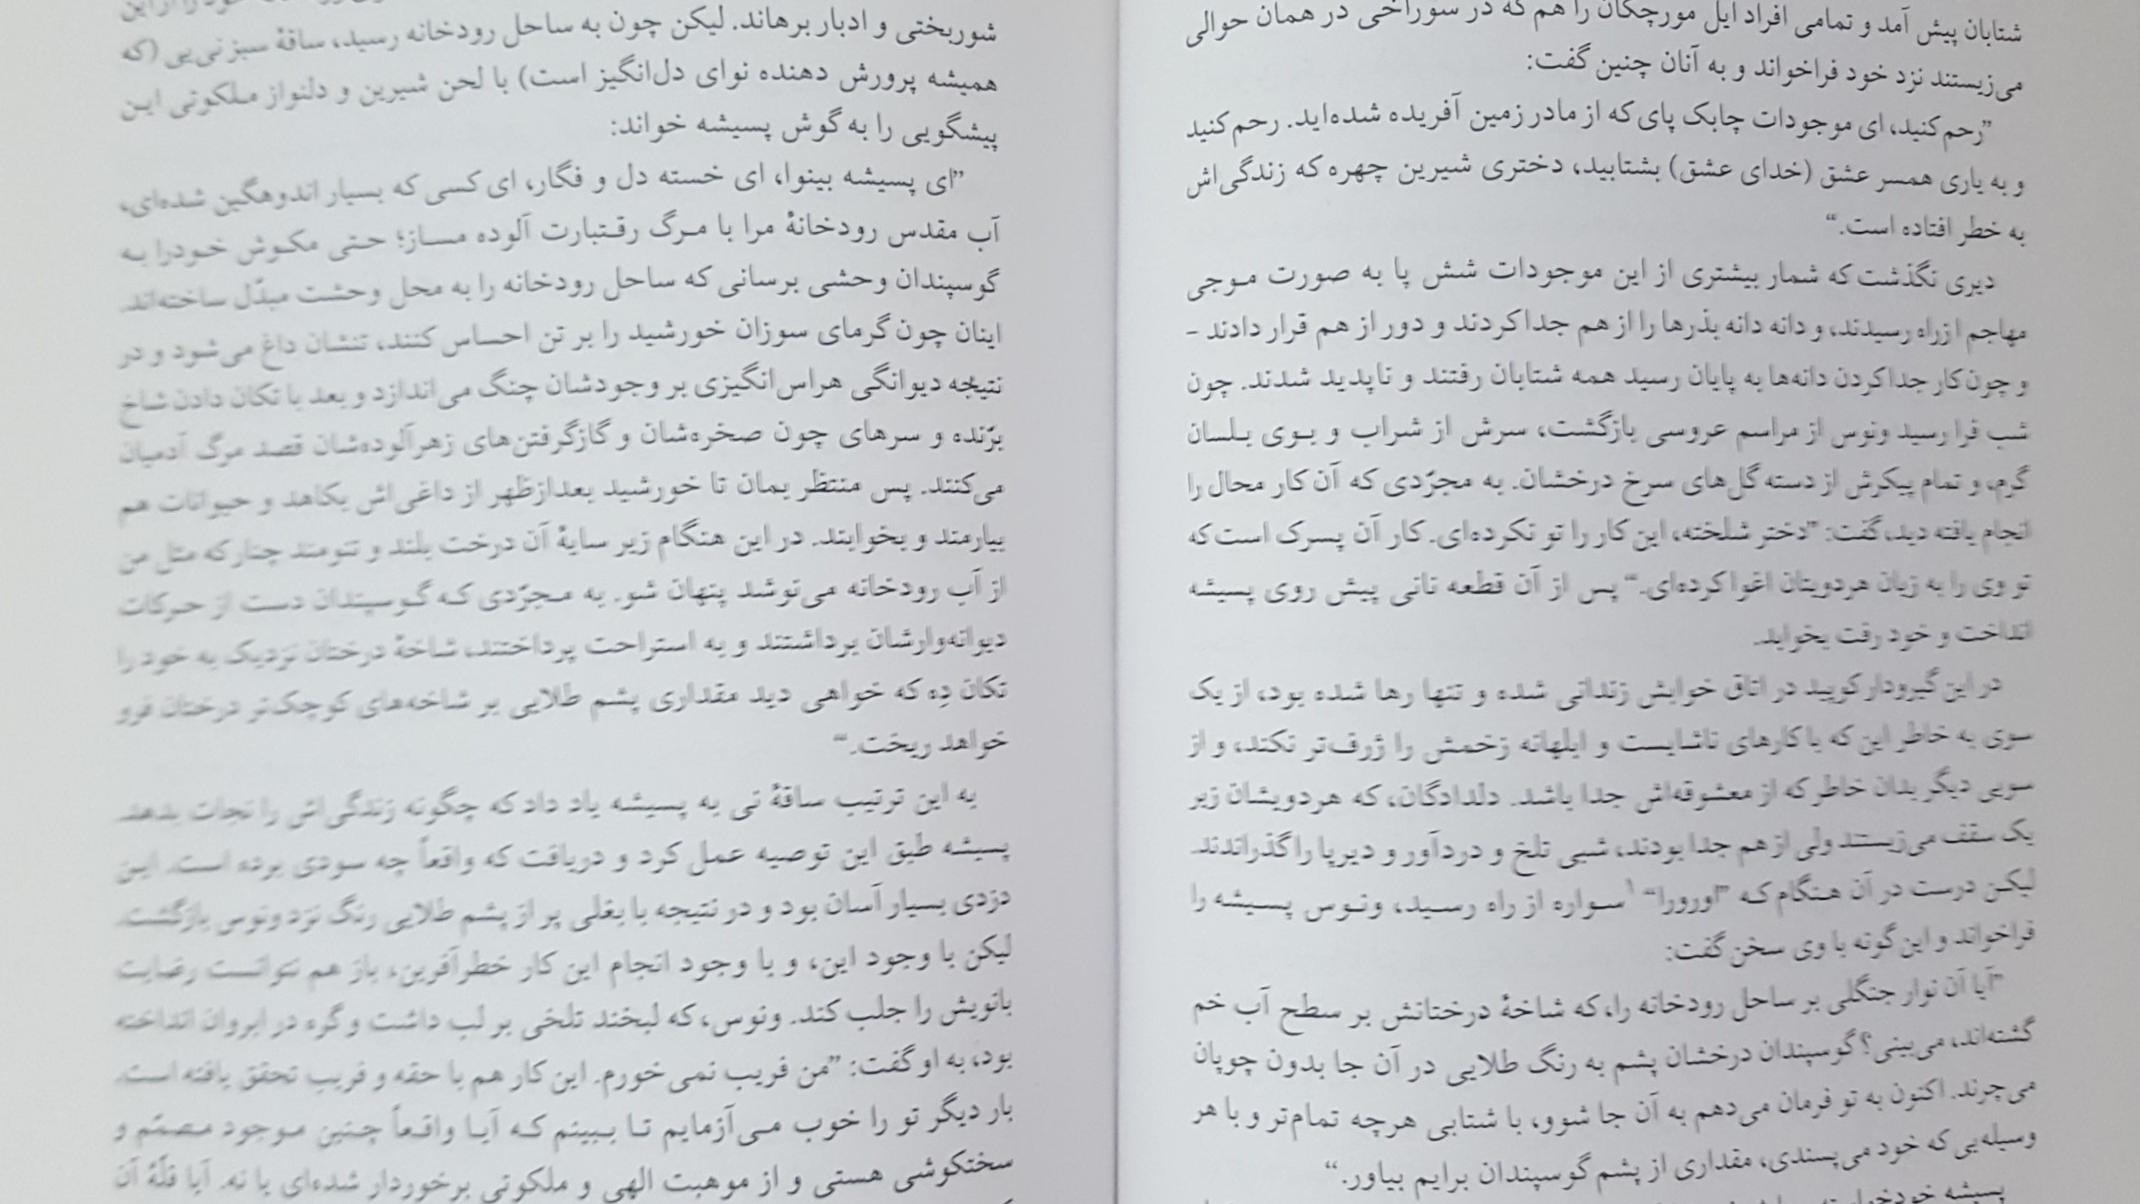 شتابان پیش آمد و تمامی افراد ایل مورچگان را هم که در سوراخی در همان حوالی
می‌زیستند نزد خود فراخواند و به آنان چنین گفت:
”رحم کنید، ای موجودات چابک پای که از مادر زمین آفریده شده‌اید. رحم کنید
و به یاری همسر عشق (خدای عشق) بشتابید، دختری شیرین چهره که زندگی‌اش
به خطر افتاده است.“
دیری نگذشت که شمار بیشتری از این موجودات شش پا به صورت موجی
مهاجم از راه رسیدند، و دانه دانه بذرها را از هم جدا کردند و دور از هم قرار دادند -
و چون کار جدا کردن دانه‌ها به پایان رسید همه شتابان رفتند و ناپدید شدند. چون
شب فرا رسید ونوس از مراسم عروسی بازگشت، سرش از شراب و بوی بلسان
گرم، و تمام پیکرش از دسته گل‌های سرخ درخشان. به مجرّدی که آن کار محال را
انجام یافته دید، گفت: ”دختر شلخته، این کار را تو نکرده‌ای. کار آن پسرک است که
تو وی را به زیان هردویتان اغوا کرده‌ای.“ پس از آن قطعه نانی پیش روی پسیشه
انداخت و خود رفت بخوابد.
در این گیرودار کوپید در اتاق خوابش زندانی شده و تنها رها شده بود، از یک
سوی به خاطر این که با کارهای ناشایست و ابلهانه زخمش را ژرف‌تر نکند، و از
سویی دیگر بدان خاطر که از معشوقه‌اش جدا باشد. دلدادگان، که هردویشان زیر
یک سقف می‌زیستند ولی از هم جدا بودند، شبی تلخ و دردآور و دیرپا را گذراندند.
لیکن درست در آن هنگام که ”اورورا“ ۱ سواره از راه رسید، ونوس پسیشه را
فراخواند و این گونه با وی سخن گفت:
”آیا آن نوار جنگلی بر ساحل رودخانه را، که شاخهٔ درختانش بر سطح آب خم
گشته‌اند، می‌بینی؟ گوسپندان درخشان پشم به رنگ طلایی در آن جا بدون چوپان
می‌چرند. اکنون به تو فرمان می‌دهم به آن جا شوو، با شتابی هرچه تمام‌تر و با هر
وسیله‌یی که خود می‌پسندی، مقداری از پشم گوسپندان برایم بیاور.“
پسیشه
شوربختی و ادبار برهاند. لیکن چون به ساحل رودخانه رسید، ساقهٔ سبز نی‌یی (که
همیشه پرورش دهنده نوای دل‌انگیز است) با لحن شیرین و دلنواز ملکوتی این
پیشگویی را به گوش پسیشه خواند:
”ای پسیشه بینوا، ای خسته دل و فگار، ای کسی که بسیار اندوهگین شده‌ای،
آب مقدس رودخانهٔ مرا با مرگ رقتبارت آلوده مساز؛ حتی مکوش خودرا به
گوسپندان وحشی برسانی که ساحل رودخانه را به محل وحشت مبدّل ساخته‌اند.
اینان چون گرمای سوزان خورشید را بر تن احساس کنند، تنشان داغ می‌شود و در
نتیجه دیوانگی هراس‌انگیزی بر وجودشان چنگ می‌اندازد و بعد با تکان دادن شاخ
برّنده و سرهای چون صخره‌شان و گازگرفتن‌های زهرآلوده‌شان قصد مرگ آدمیان
می‌کنند. پس منتظر بمان تا خورشید بعدازظهر از داغی‌اش بکاهد و حیوانات هم
بیارمند و بخوابند. در این هنگام زیر سایهٔ آن درخت بلند و تنومند چنار که مثل من
از آب رودخانه می‌نوشد پنهان شو. به مجرّدی که گوسپندان دست از حرکات
دیوانه‌وارشان برداشتند و به استراحت پرداختند، شاخهٔ درختان نزدیک به خود را
تکان دِه که خواهی دید مقداری پشم طلایی بر شاخه‌های کوچک‌تر درختان فرو
خواهد ریخت.“
به این ترتیب ساقهٔ نی به پسیشه یاد داد که چگونه زندگی‌اش را نجات بدهد.
پسیشه طبق این توصیه عمل کرد و دریافت که واقعاً چه سودی برده است. این
دزدی بسیار آسان بود و در نتیجه با بغلی پر از پشم طلایی رنگ نزد ونوس بازگشت.
لیکن با وجود این، و با وجود انجام این کار خطرآفرین، باز هم نتوانست رضایت
بانویش را جلب کند. ونوس، که لبخند تلخی بر لب داشت و گره در ابروان انداخته
بود، به او گفت: ”من فریب نمی‌خورم. این کار هم با حقه و فریب تحقق یافته است.
بار دیگر تو را خوب می‌آزمایم تا ببینم که آیا واقعاً چنین موجود مصمّم و
سختکوشی هستی و از موهبت الهی و ملکوتی برخوردار شده‌ای یا نه. آیا قلّهٔ آن